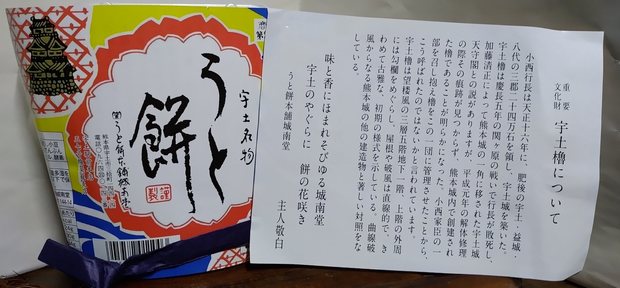 うと餅
宇土名物
謹製
重要
文化財 宇土櫓について
小西行長は天正十六年に、肥後の宇土、益城
八代の三郡二十四万石を領し、宇土城を築いた。
宇土櫓は慶長五年の関ヶ原の戦いで行長が敗死し、
加藤清正によって熊本城の一角に移された宇土城
天守閣との説がありますが、平成元年の解体修理
の際その痕跡が見つからず、熊本城内で創建され
た櫓であることが明らかになった。小西家臣の一
部を召し抱え櫓をこの一団に管理させたことから、
こう呼ばれたのではないかと言われています。
宇土櫓は望楼風の三層五階地下一階、上階の外周
には勾欄をめぐらし、屋根や破風は直線的で、き
わめて古雅な、初期の様式を示している。曲線破
風からなる熊本城の他の建造物と著しい対照をな
している。
味と香にほまれそびゆる城南堂
宇土のやぐらに 餅の花咲き
うと餅本舗城南堂
主人敬白